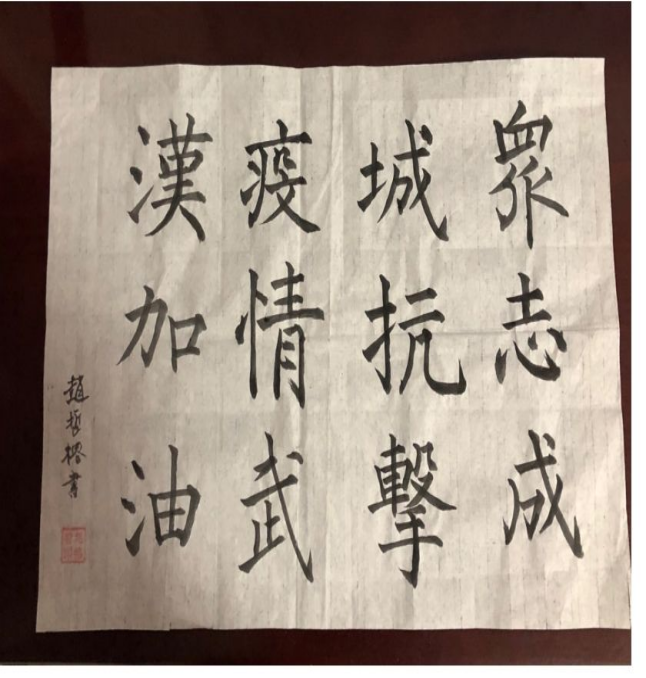 眾志成
城抗擊
疫情武
漢加油
趙哲樑書